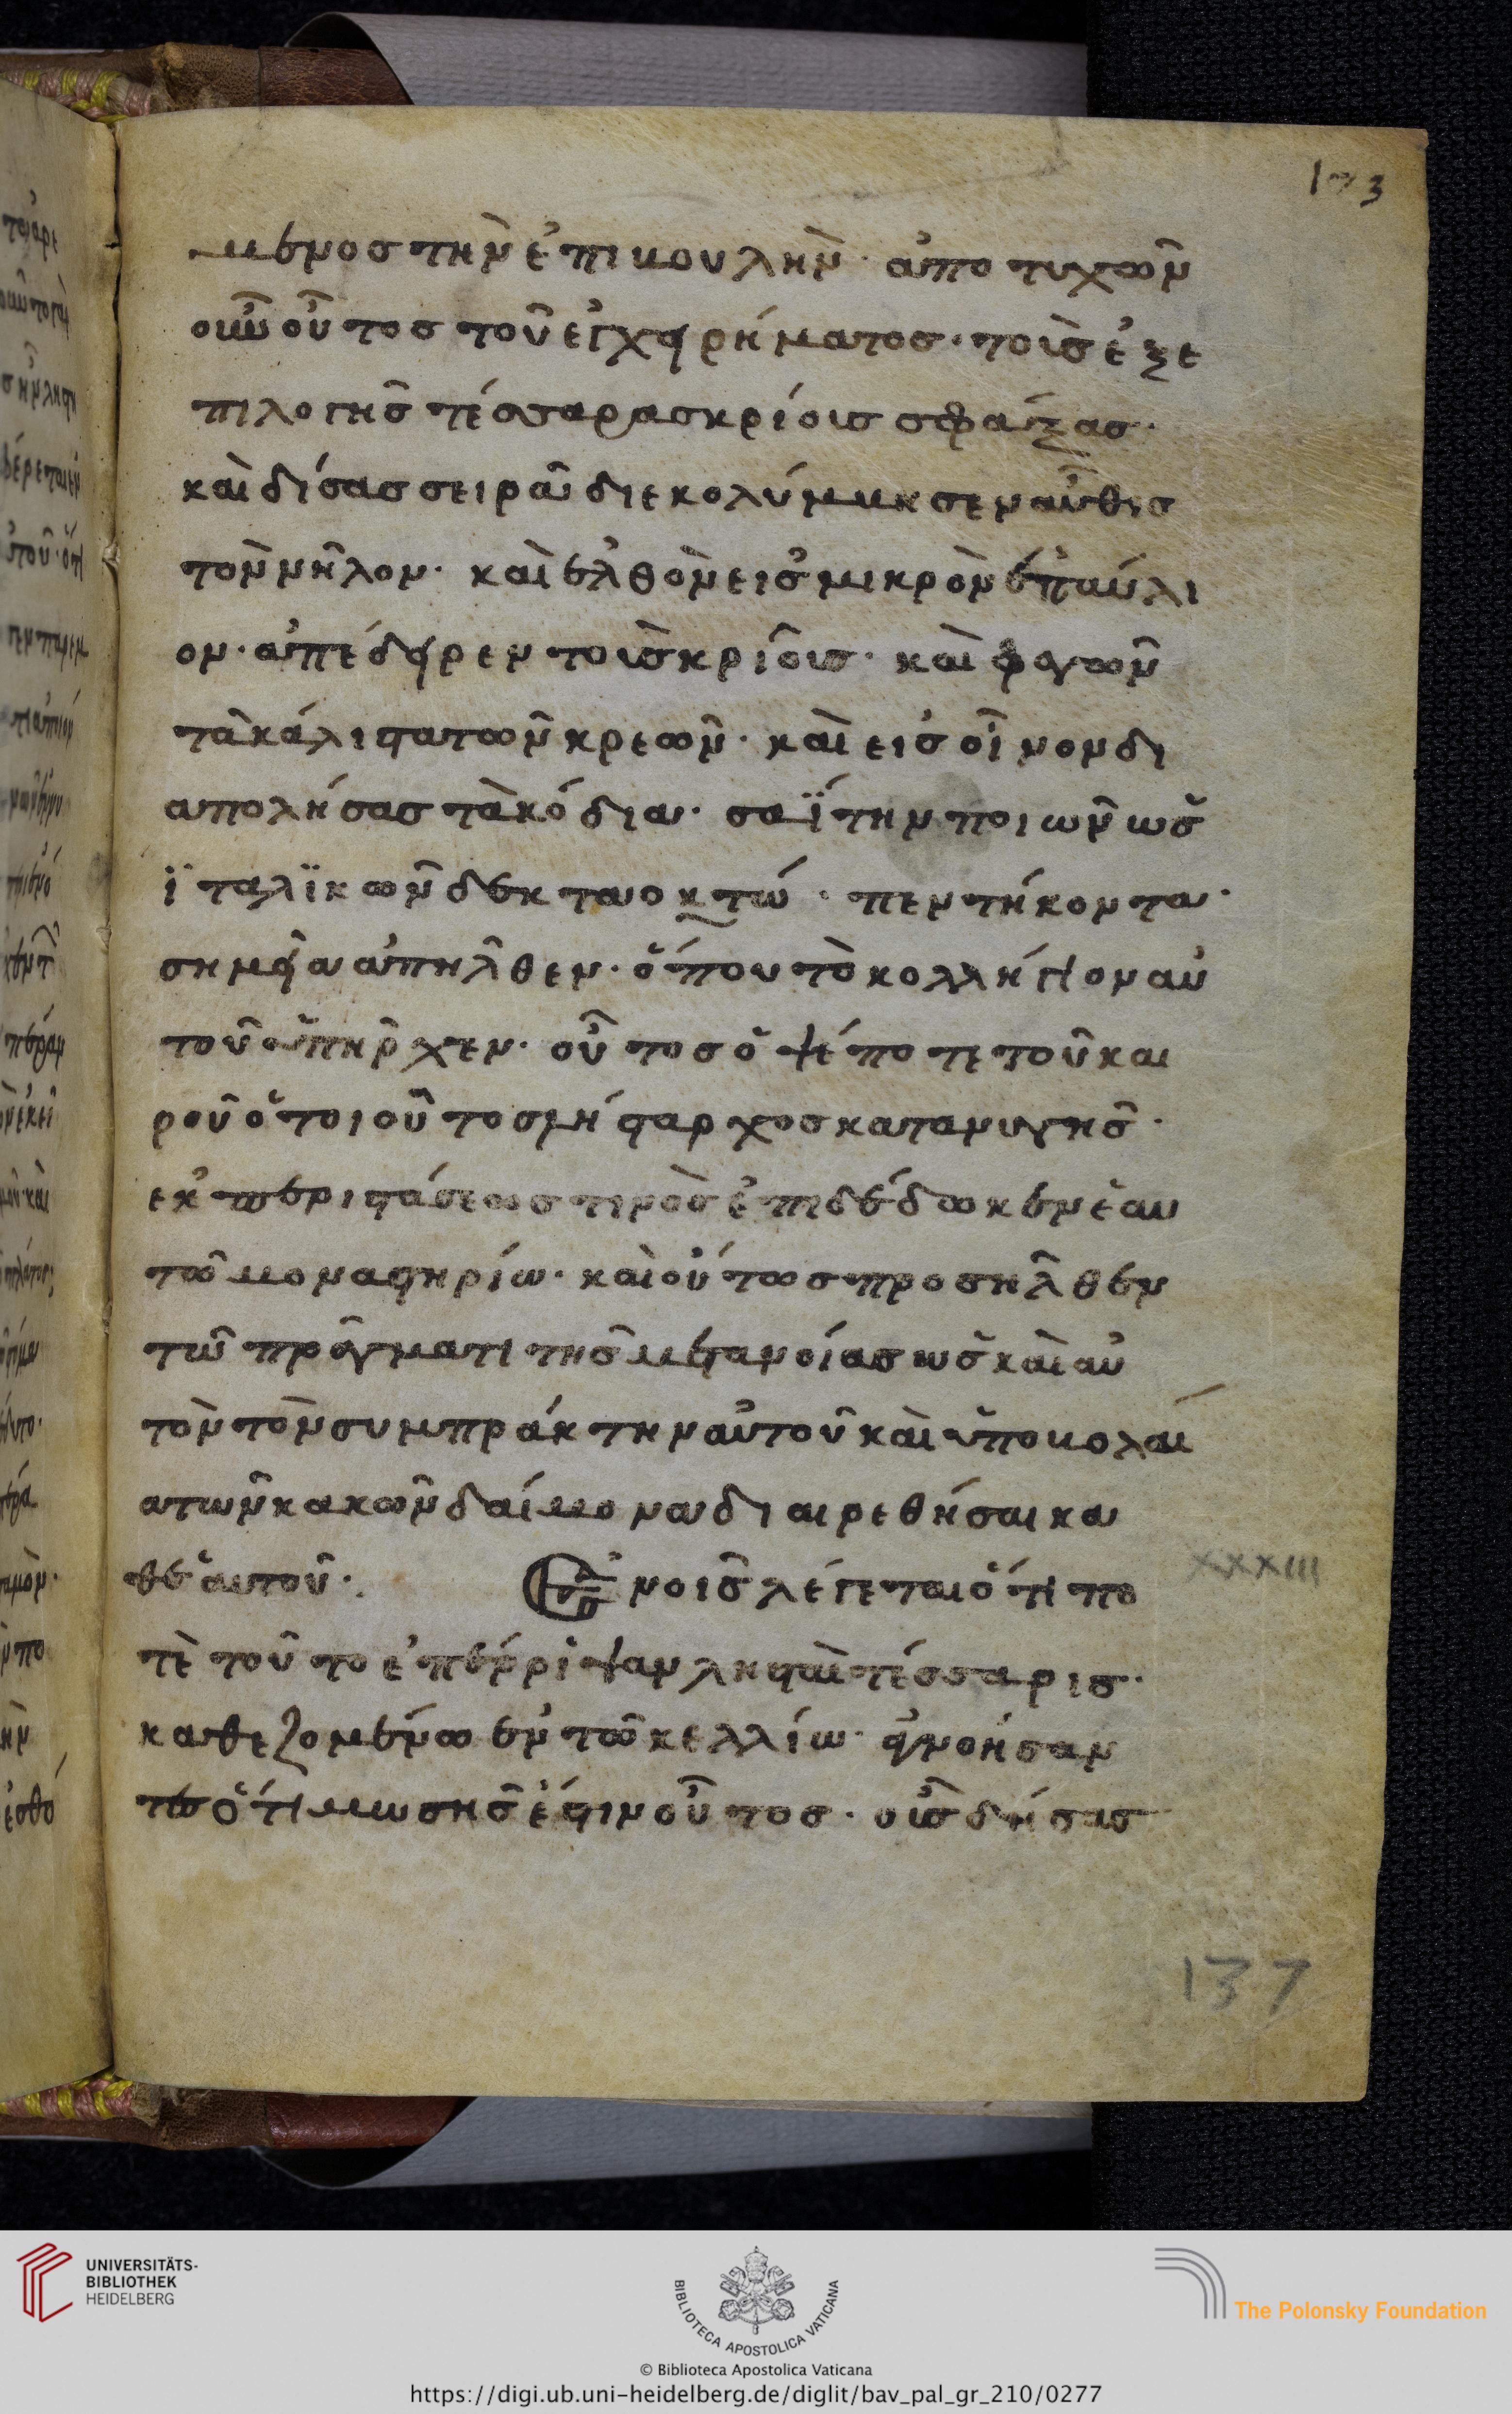 173
μενος τὴν ἐπιβουλὴν· ἀποτυχῶν
οὖν οὗτος τοῦ εγχειρήματος· τοὺς ἐξε
πιλογῆς τέσσαρας κρίους σφάξας·
καὶ δήσας σειρᾶ διεκολύμβησεν αὖθις
τὸν νῆλον· καὶ ἐλθὸν εἰς μικρὸν ἐπαύλι
ον· ἀπέδειρεν τοὺς κριοὺς· καὶ φαγῶν
τὰ κάλιστα τῶν κρεῶν· καὶ εἰς οἶνον δι
απολήσας τὰ κόδια· σαΐτην ποιῶν ὡς
ϊταλϊκῶν δεκταοκτώ· πεντήκοντα
σημεῖα ἀπῆλθεν· ὅπου τὸ κολλήγιον αὐ
τοῦ ὑπῆρχεν· οὗτος ὀψέ ποτε τοῦ και
ροῦ ὁ τοιοῦτος λήσταρχος κατανυγῆς·
ἐκ περιστάσεως τινὸς ἐπιδέδωκεν ἑαυ
τῶ μοναστηρίω· καὶ οὕτως προσῆλθεν
τῶ πράγματι τῆς μετανοίας ὡς καὶ αὐ
τὸν τὸν συμπράκτην αὐτοῦ καὶ ὑποβολαί
α τῶν κακῶν δαίμονα διαιρεθήσαι κα
θε αυτοῦ·
Ἐν οἷς λέγεται ὅτι πο
XXXIII
τὲ τοῦτο ἐπέρριψαν λησταὶ τέσσαρις·
καθεζομένω ἐν τῶ κελλίω· ἠγνοήσαν
τες ὅτι μωσῆς ἐστιν οὗτος· οὓς δήσας
137
UNIVERSITÄTS-
BIBLIOTHEK
HEIDELBERG
BIBLIOTECA APOSTOLICA VATICANA
The Polonsky Foundation
© Biblioteca Apostolica Vaticana
https://digi.ub.uni-heidelberg.de/diglit/bav_pal_gr_210/0277